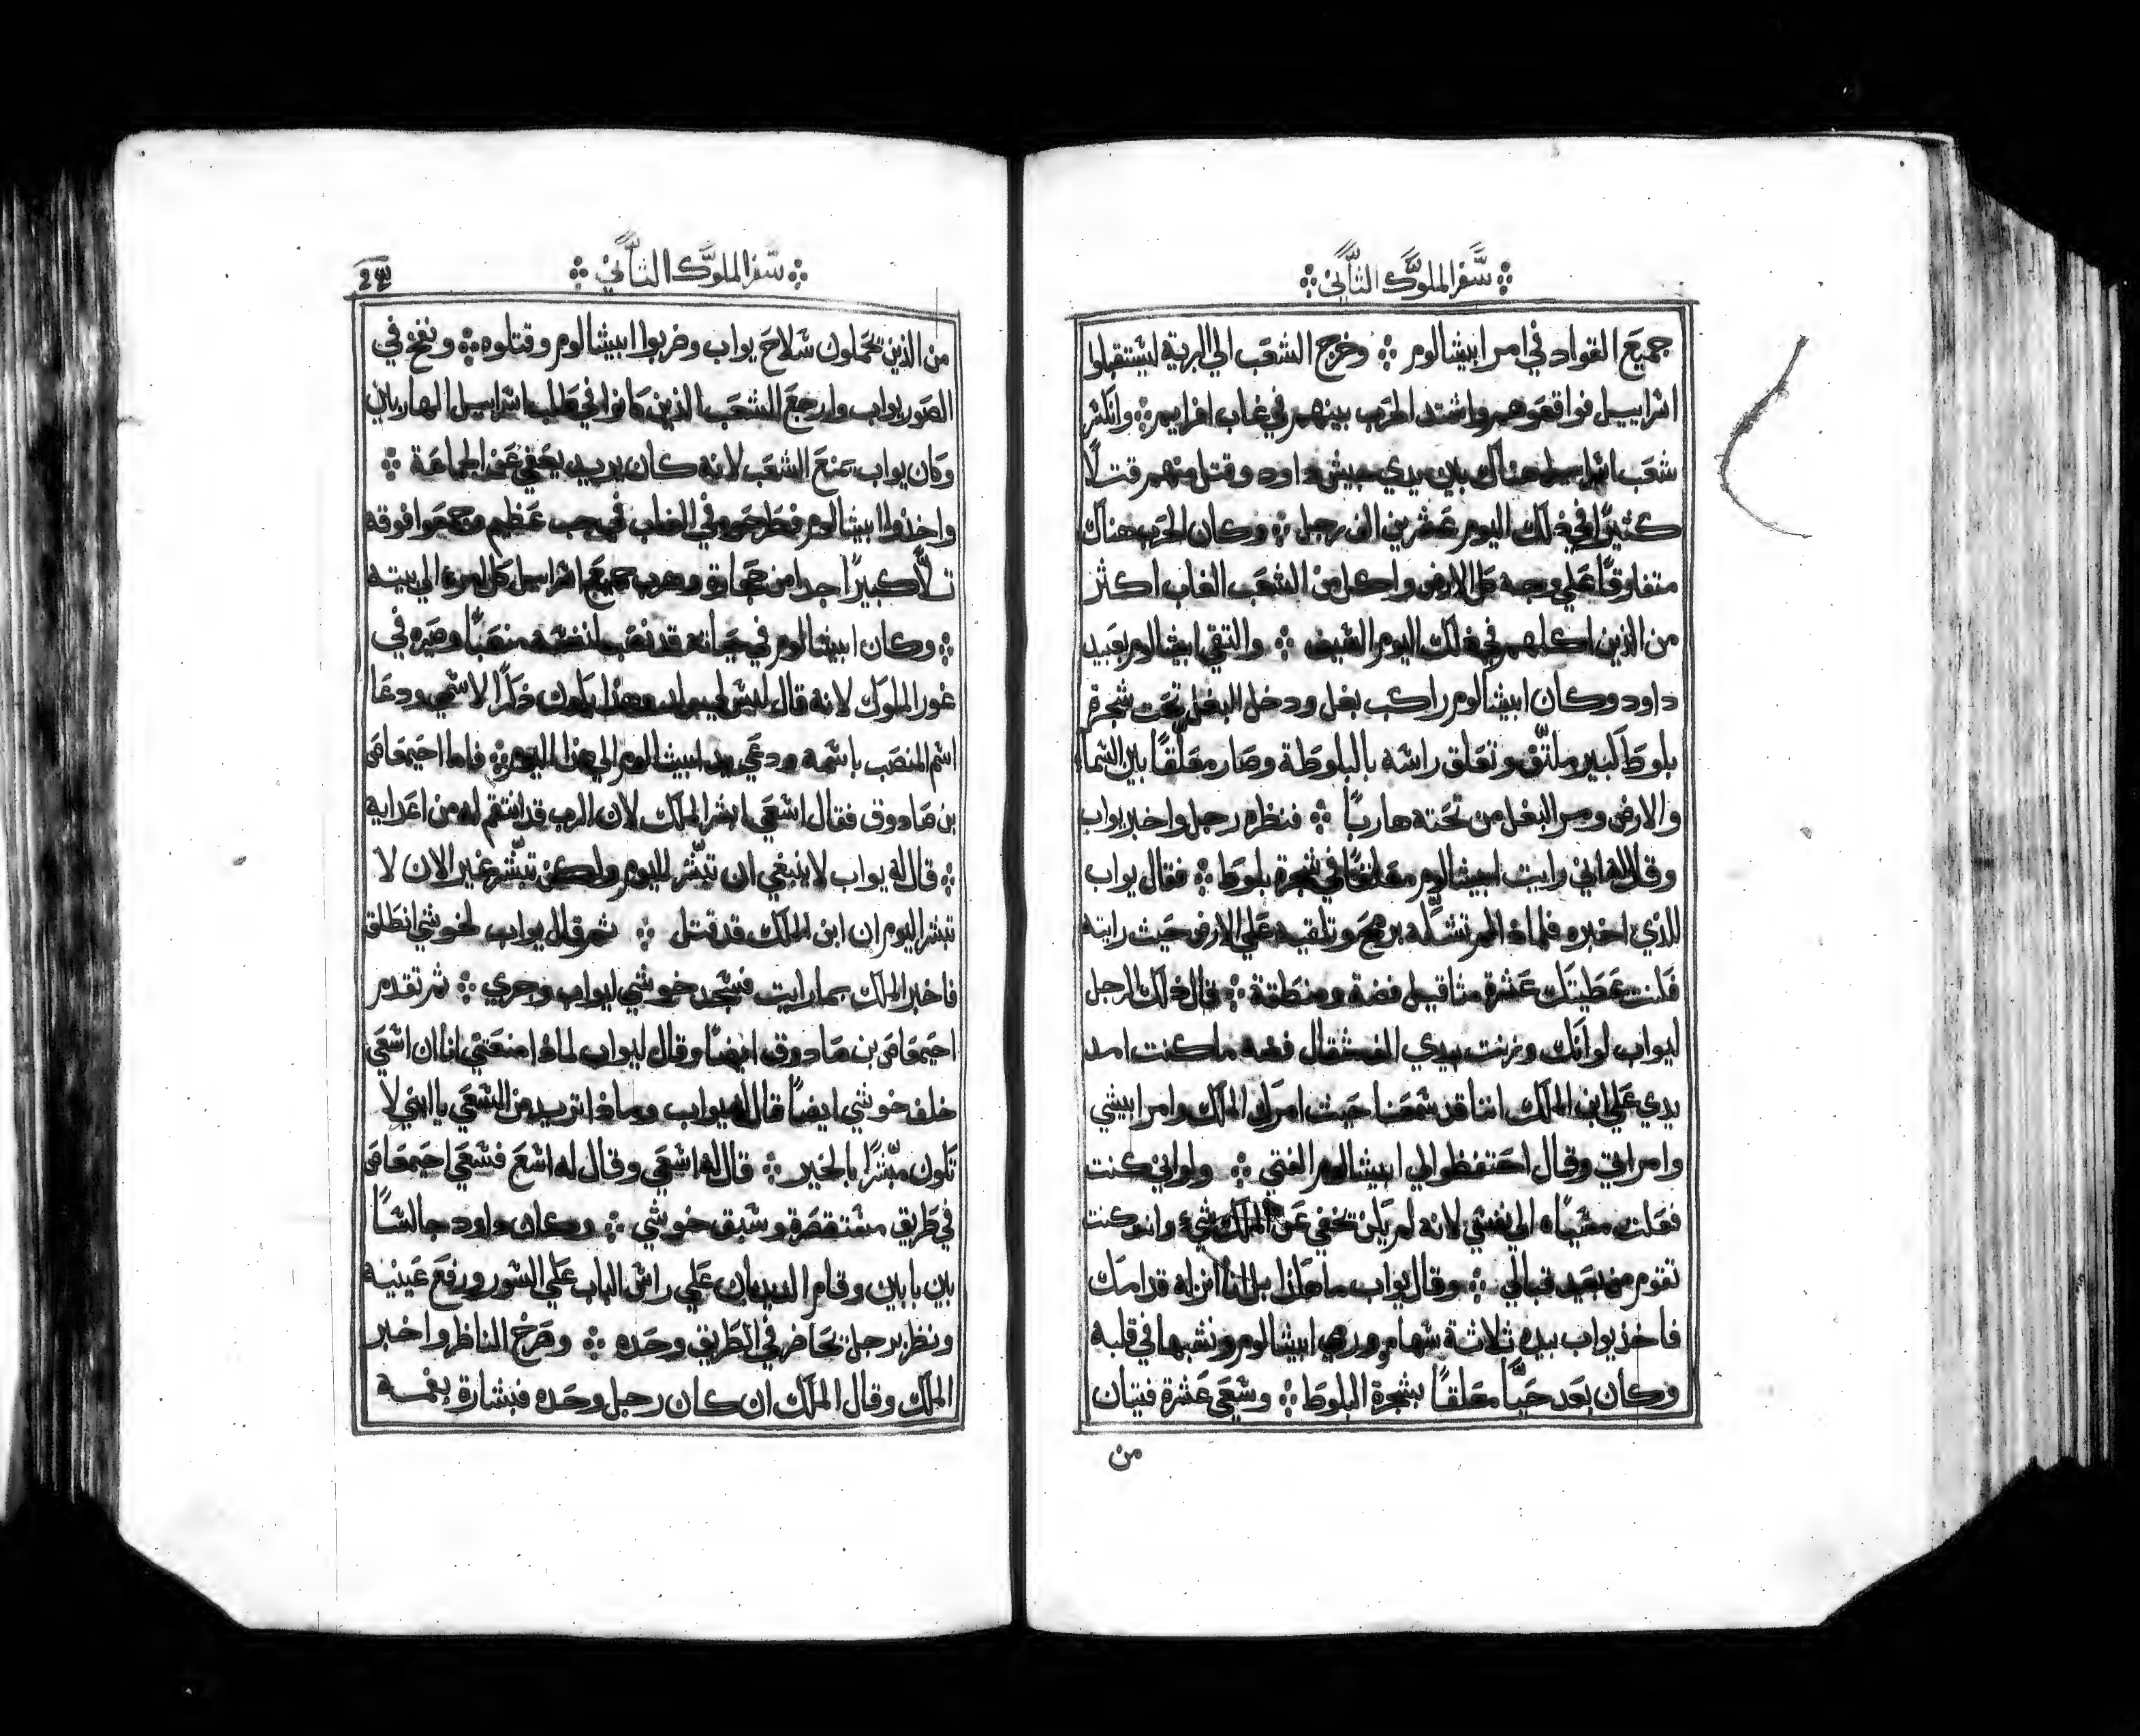 سفر الملوك الثاني
جميع القواد في امر ابيشالوم وخرج الشعب الي البرية ليستقبلوا
اسراييل فواقعوهم واشتد الحرب بينهم في غاب افراييم وانكسر
شعب اسراييل هناك بين يدي جيش داود وقتل منهم قتلاً
كثيرًا في ذلك اليوم عشرين الف رجل وكان الحرب هناك
متفاوقًا علي وجه كل الارض واكل من الشعب الغاب اكثر
من الذين اكلهم في ذلك اليوم السيف والتقي ابيشالوم بعبيد
داود وكان ابيشالوم راكب بغل ودخل البغل تحت شجرة
بلوط كبير ملتف وتعلق راسه بالبلوطة وصار معلقًا بين السما
والارض ومر البغل من تحته هاربًا فنظره رجل واخبر يواب
وقال له اني رايت ابيشالوم معلقًا في شجرة بلوط فقال يواب
للذي اخبره فلماذا لم تشكه برمح وتلقيه علي الارض حيث رايته
فكنت عطيتك عشرة مثاقيل فضة ومنطقة قال ذلك الرجل
ليواب لو انك وزنت بيدي الف مثقال فضه ما كنت امد
يدي علي ابن الملك اننا قد سمعنا حيث امرك الملك وامر ابيشي
وامر اتي وقال احتفظوا لي ابيشالوم الفتي ولو اني كنت
فعلت الي نفسي لانه لم يكن تخفي عن الملك شيء وانت كنت
تقوم من بعيد قبالي وقال يواب ما هكذا بل انا انزله قدامك
فاخذ يواب بيده ثلاثة سهام ورمي ابيشالوم ونشبها في قلبه
وكان بعد حيًّا معلقًا بشجرة البلوط وسعي عشرة فتيان
من
سفر الملوك الثاني
من الذين يحملون سلاح يواب وضربوا ابيشالوم وقتلوه ونفخ في
الصور يواب وارجع الشعب الذين كانوا في طلب اسراييل الهاربين
وكان يواب يمنع الشعب لانه كان يريد يعفي عن الجماعة
واخذوا ابيشالوم فطرحوه في الغاب في جب عظيم وجمعوا فوقه
تلاً كبيرًا جدا من حجارة وهرب جميع اسراييل كل امرء الي بيته
وكان ابيشالوم في حياته قد نصب لنفسه منصبًا وصيره في
غور الملوك لانه قال ليس لي ولد وهذا يكون ذكرًا لاسمي ودعا
اسم المنصب باسمه ودعي يد ابيشالوم الي هذا اليوم فاما احيمعاص
بن صادوق فقال اسعي ابشر الملك لان الرب قد انتقم له من اعدايه
قال له يواب لا ينبغي ان تبشر اليوم ولكن تبشر غير الان لا
تبشر اليوم ان ابن الملك قد قتل ثم قال يواب لخوشي انطلق
فاخبر الملك بما رايت فسجد خوشي ليواب وجري ثم تقدم
احيمعاص بن صادوق ايضًا وقال ليواب لماذا منعتني انا ان اسعي
خلف خوشي ايضاً قال له يواب وماذا تريد من السعي يا ابني لا
تكون مبشرًا بالخير قال له اسعي وقال له اسع فسعي احيمعاص
في طريق وسبق خوشي وكان داود جالسًا
بين بابين وقام الديدبان علي راس الباب علي السور ورفع عينيه
ونظر برجل تحاضر في الطريق وحده وصرخ الناظر واخبر
الملك وقال الملك ان كان رجل وحده فبشارة بفمه